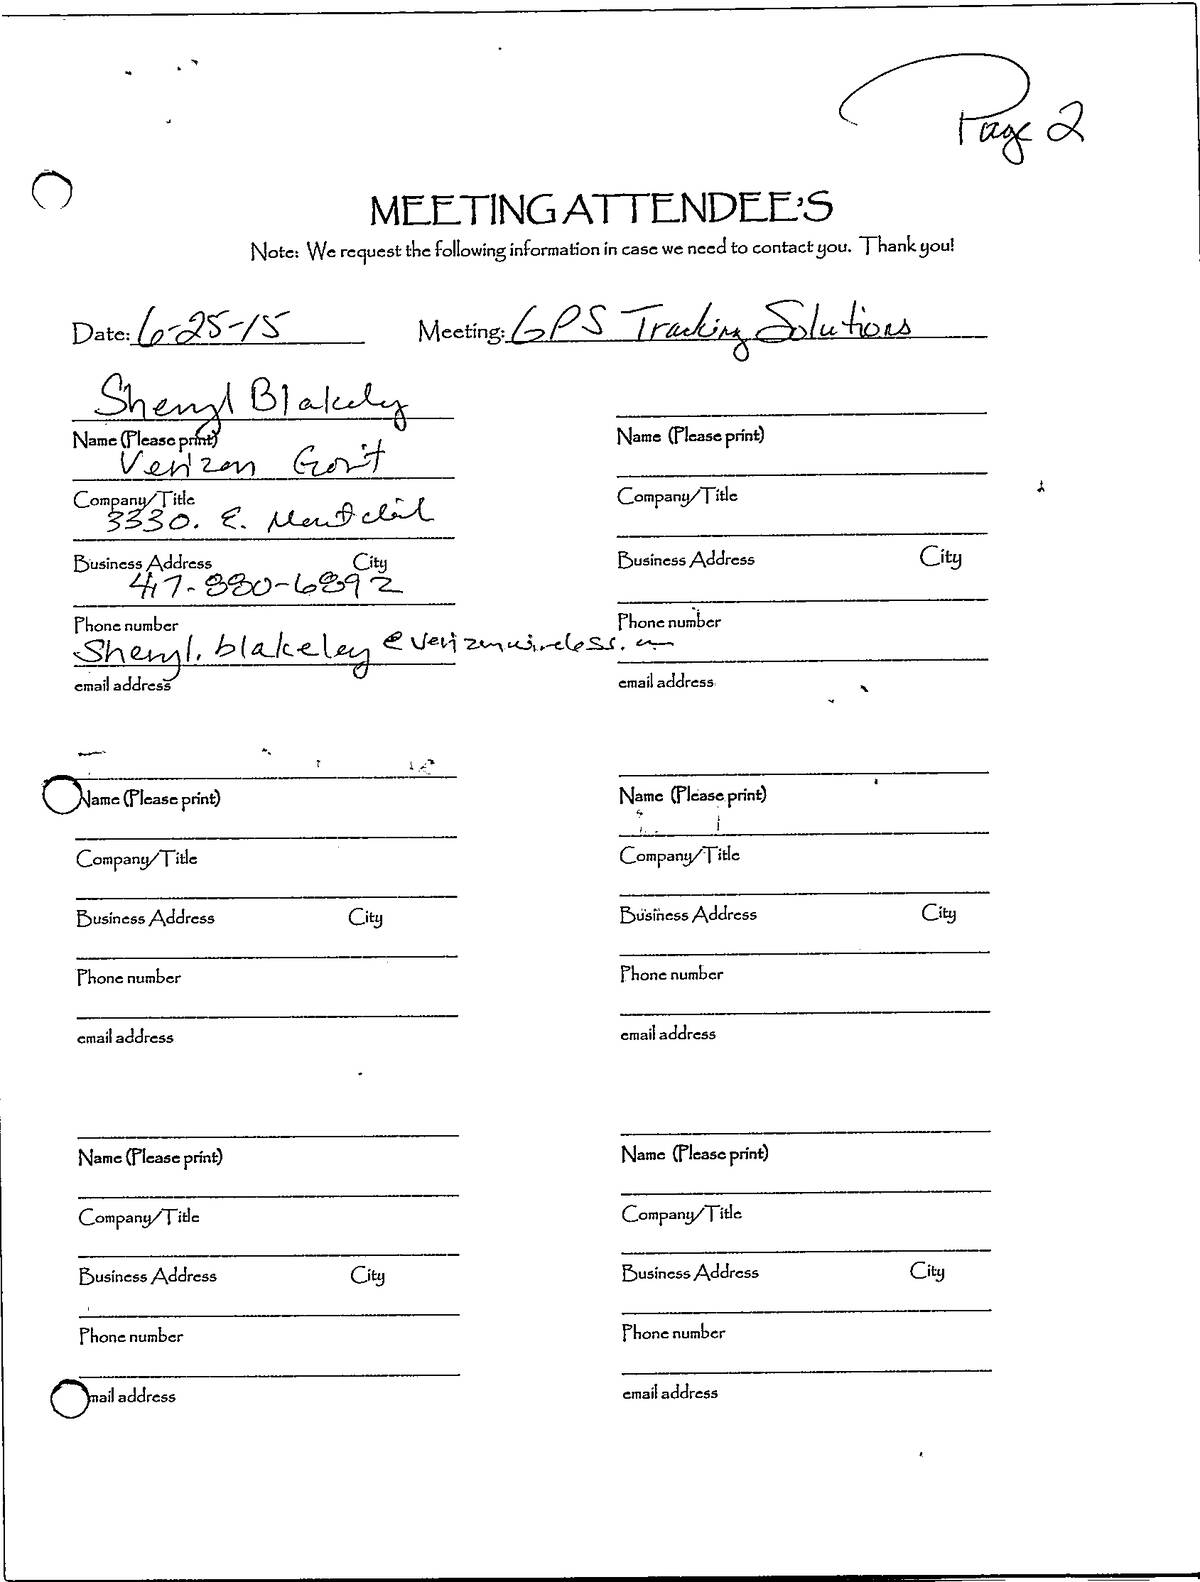 Page 2
MEETING ATTENDEE'S
Note: We request the following information in case we need to contact you. Thank you!
Date: 6-25-15 Meeting: GPS Tracking Solutions
Sheryl Blakely
Name (Please print) Name (Please print)
Verizon Gov't
Company/Title Company/Title
3330. E. Montclair
Business Address City Business Address City
417-880-6892
Phone number Phone number
Sheryl.blakeley@verizonwireless.
email address email address
Name (Please print) Name (Please print)
Company/Title Company/Title
Business Address City Business Address City
Phone number Phone number
email address email address
Name (Please print) Name (Please print)
Company/Title Company/Title
Business Address City Business Address City
Phone number Phone number
mail address email address